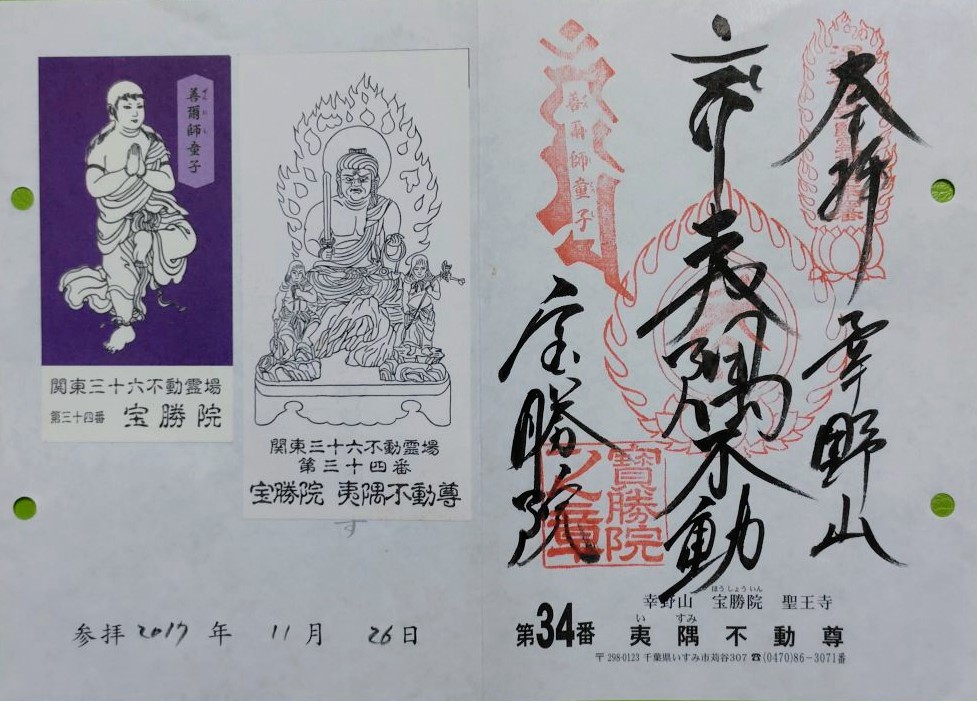 善爾師童子
ぜんにし
関東三十六不動霊場
第三十四番 宝勝院
関東三十六不動霊場
第三十四番
宝勝院 夷隅不動尊
す
参拝 2017年 11月 26日
奉拝
幸野山
夷隅不動
善爾師童子
宝勝院
寶勝院
之章
ほうしょういん
幸野山 宝勝院 聖王寺
いすみ
第34番 夷隅不動尊
〒298-0123 千葉県いすみ市苅谷307 ☎(0470)86-3071番